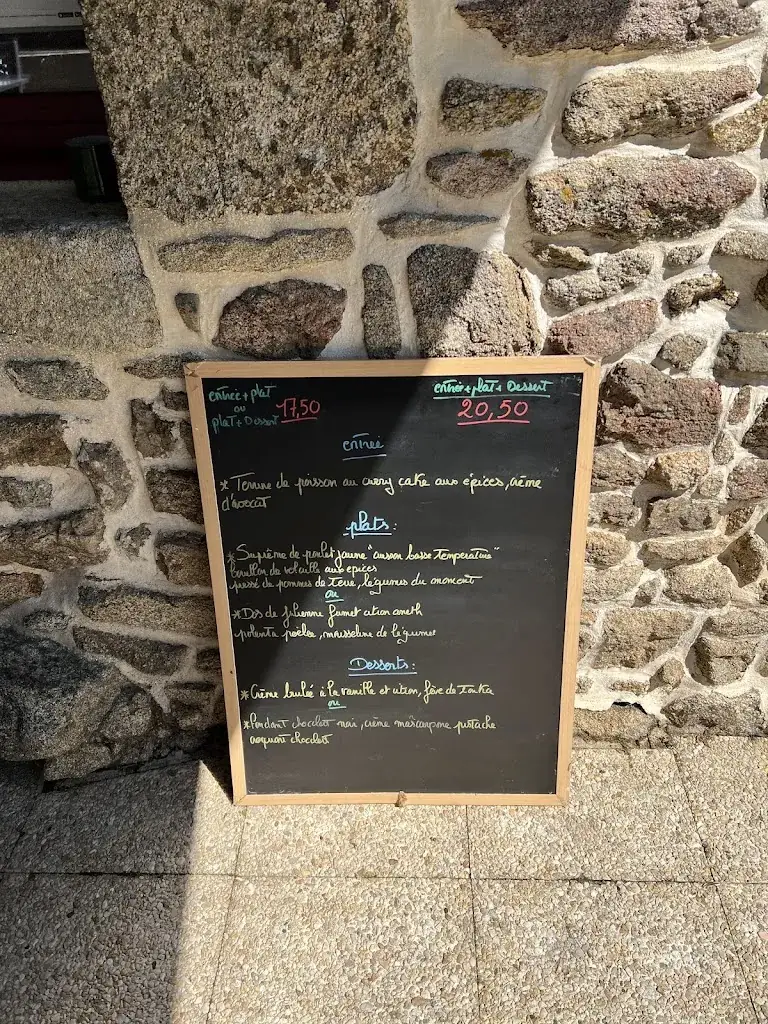 entrée + plat
ou
plat + Dessert 17,50
entrée + plat + Dessert
20,50
entrée
* Terrine de poisson au curry cake aux épices, crème
d'avocat
plats :
* Suprême de poulet jaune "cuisson basse température"
bouillon de volaille aux épices
pressé de pommes de terre, légumes du moment
ou
* Dos de julienne fumet citron aneth
polenta poêlée, mousseline de légumes
Desserts :
* Crème brulée à la vanille et citron, fève de tonka
ou
* Fondant chocolat noir, crème mascarpone pistache
croquant chocolat